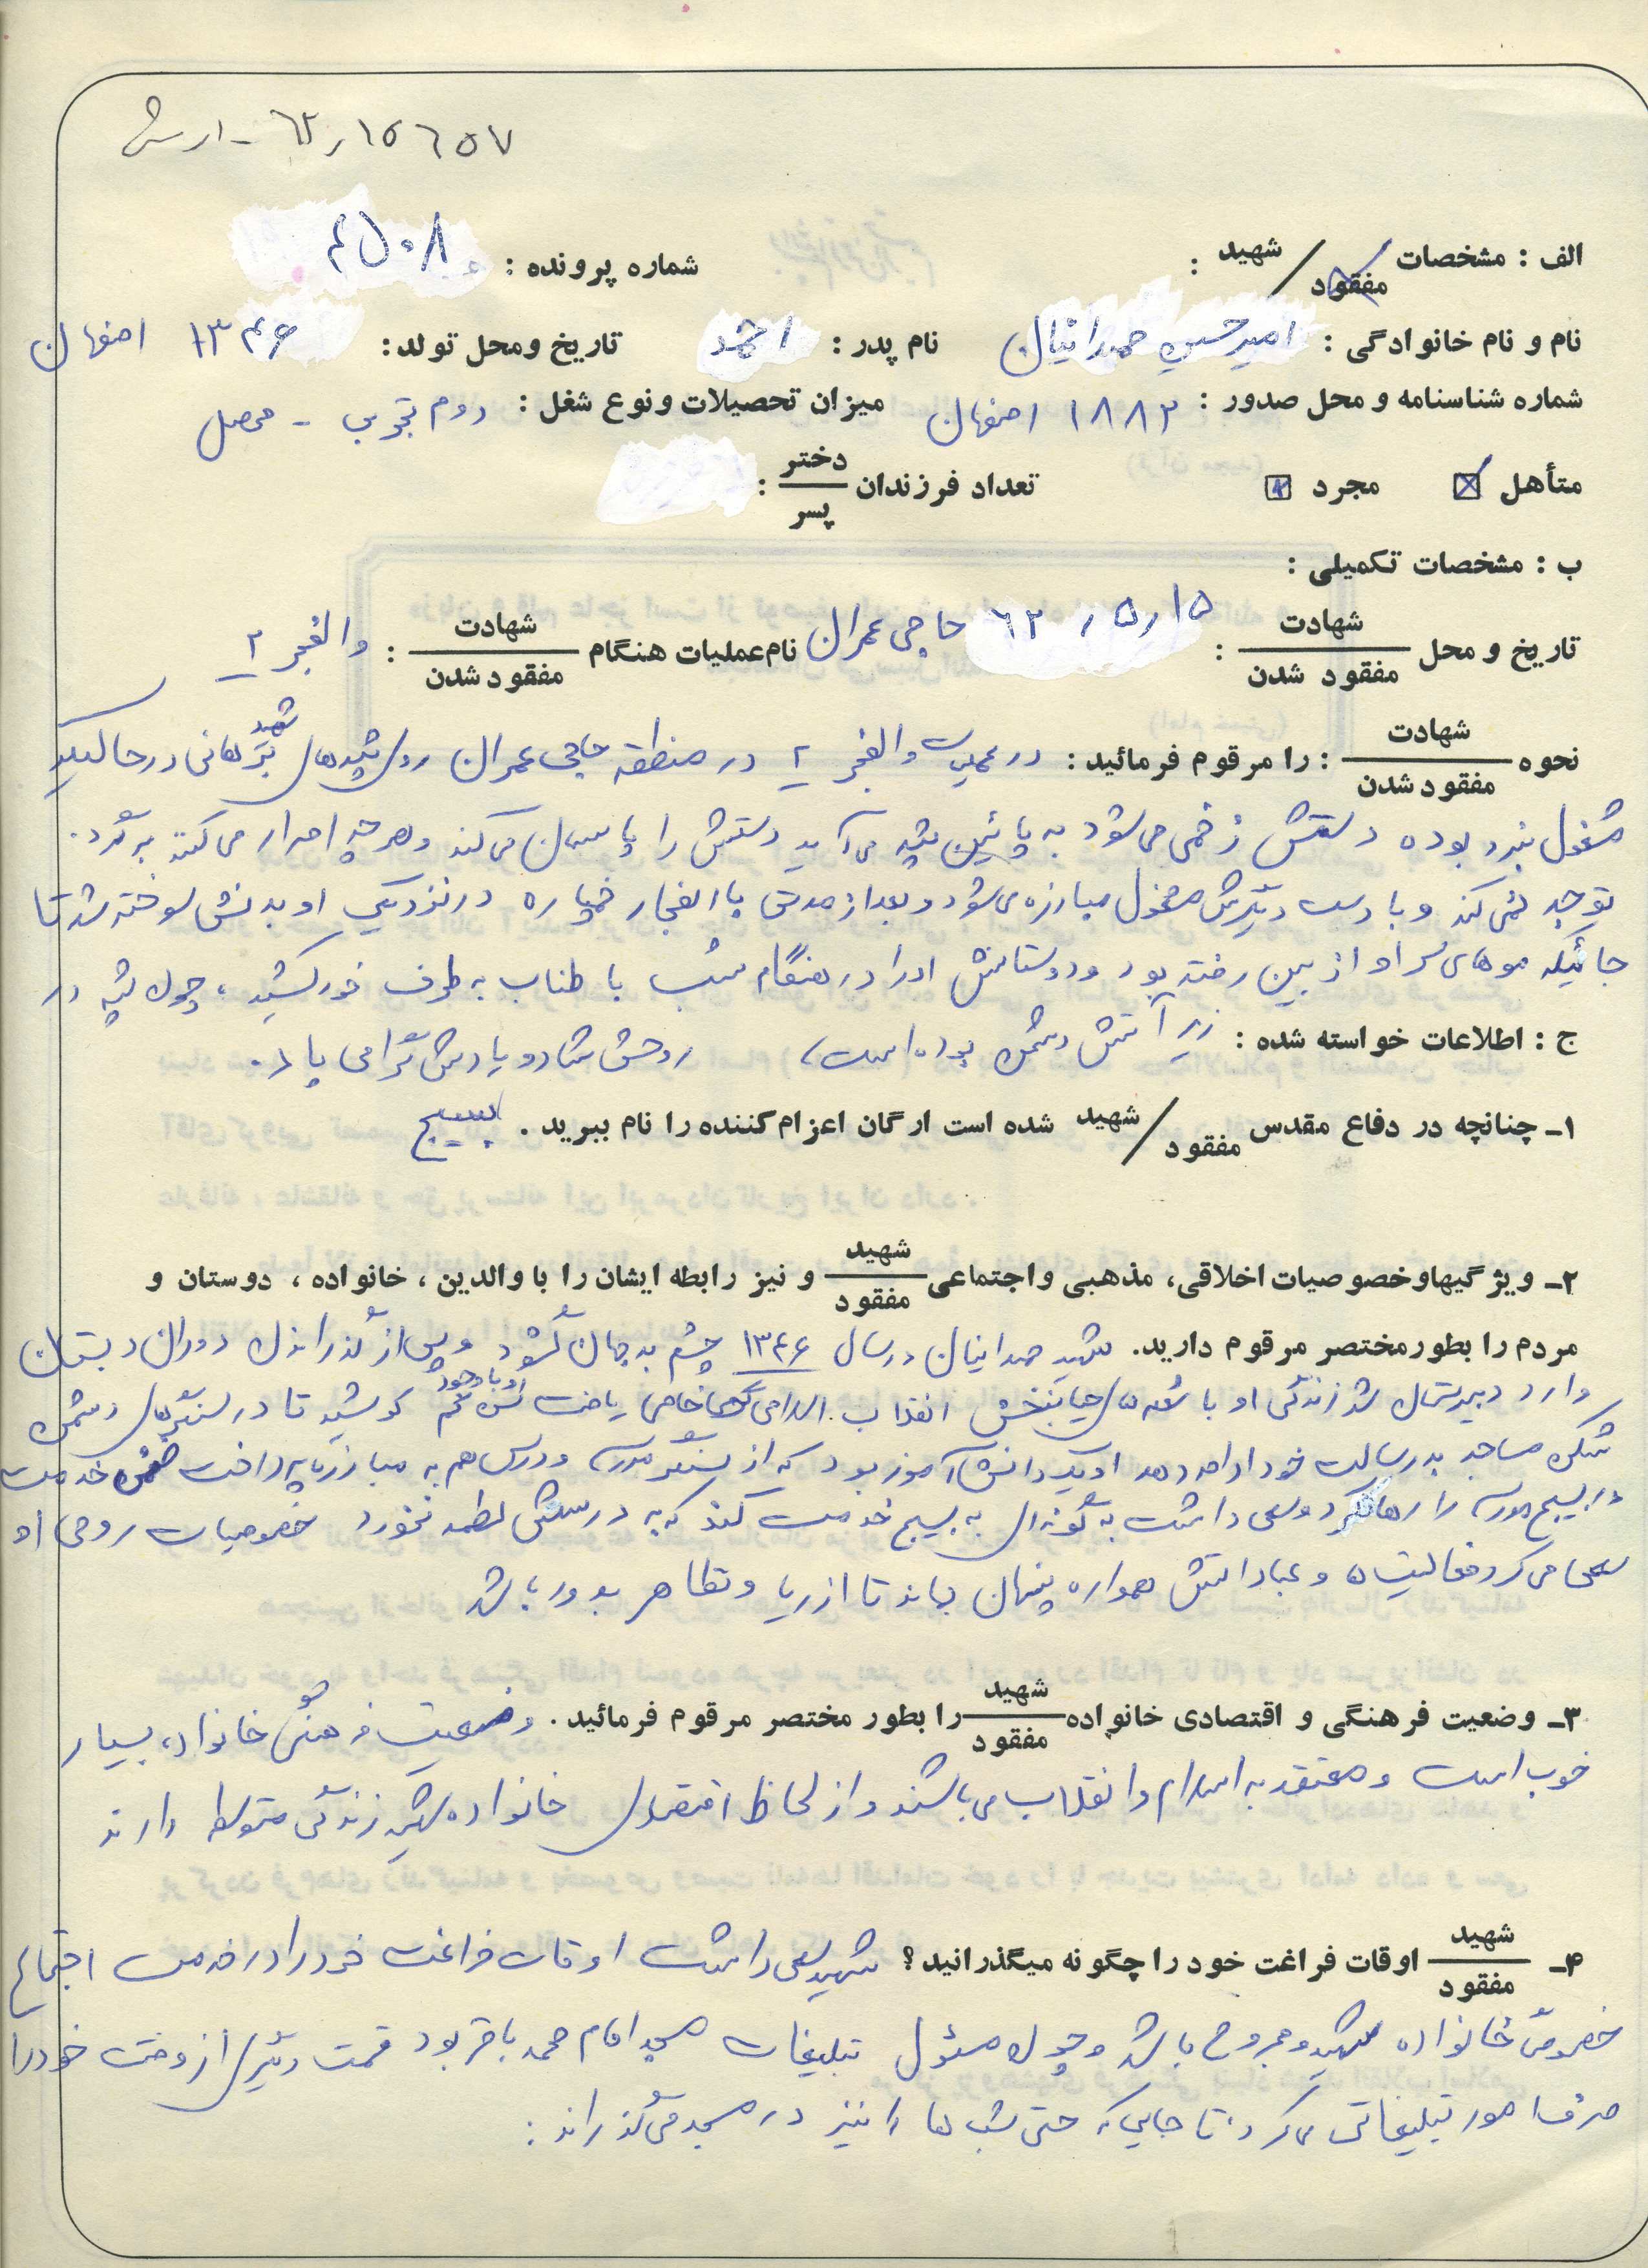 ۶۲٫۱۵۶۵۷ - ارسش
الف : مشخصات شهید / مفقود : شماره پرونده : ۴۵۰۸
نام و نام خانوادگی : امیرحسین صمدانیان نام پدر : احمد تاریخ ومحل تولد : ۱۳۴۶ اصفهان
شماره شناسنامه و محل صدور : ۱۸۸۲ اصفهان میزان تحصیلات ونوع شغل : دوم تجربی - محصل
متأهل مجرد تعداد فرزندان دختر / پسر :
ب : مشخصات تکمیلی :
تاریخ و محل شهادت / مفقود شدن : ۱۵ ر ۵ ر ۶۲ حاجی عمران نام عملیات هنگام شهادت / مفقود شدن : والفجر ۲
نحوه شهادت / مفقود شدن : را مرقوم فرمائید : در عملیات والفجر ۲ در منطقه حاجی عمران روی تپه‌های شهید برهانی در حالیکه
مشغول نبرد بوده دستش زخمی می‌شود به پائین تپه می‌آید دستش را پانسمان می‌کند و هر چه اصرار می‌کنند برگردد.
توجه نمی‌کند و با دست دیگرش مشغول مبارزه می‌شود و بعد از مدتی با انفجار خمپاره در نزدیکی او بدنش سوخته شد تا
جائیکه موهای سر او از بین رفته بود و دوستانش او را در هنگام شب با طناب به طرف خود کشید ، چون تپه در
ج : اطلاعات خواسته شده : زیر آتش دشمن بوده است ، روحش شاد و یادش گرامی باد .
۱ـ چنانچه در دفاع مقدس شهید / مفقود شده است ارگان اعزام کننده را نام ببرید . بسیج
۲ـ ویژگیها و خصوصیات اخلاقی، مذهبی و اجتماعی شهید / مفقود و نیز رابطه ایشان را با والدین ، خانواده ، دوستان و
مردم را بطور مختصر مرقوم دارید. شهید صمدانیان در سال ۱۳۴۶ چشم به جهان گشود و پس از گذراندن دوران دبستان
وارد دبیرستان شد زندگی او با شعله‌های حیاتبخش انقلاب اسلامی گرمی خاصی یافت او با وجود سن کم کوشید تا در سنگرهای دشمن
شکن مساجد به رسالت خود ادامه دهد او یک دانش‌آموز بود که از سنگر مدرسه و درس هم به مبارزه پرداخت ضمن خدمت
در بسیج مدرسه را رها نکرد و سعی داشت به گونه‌ای به بسیج خدمت کند که به درسش لطمه نخورد خصوصیات روحی او
سعی می‌کرد فعالیت‌ها و عباداتش همواره پنهان بماند تا از ریا و تظاهر بدور باشد
۳ـ وضعیت فرهنگی و اقتصادی خانواده شهید / مفقود را بطور مختصر مرقوم فرمائید . وضعیت فرهنگی خانواده بسیار
خوب است و معتقد به اسلام و انقلاب می‌باشند و از لحاظ اقتصادی خانواده شهید زندگی متوسط دارند
۴ـ شهید / مفقود اوقات فراغت خود را چگونه میگذرانید ؟ شهید سعی داشت اوقات فراغت خود را در خدمت اجتماع
خصوصاً خانواده شهید و مجروح باشد و چون مسئول تبلیغات مسجد امام محمد باقر بود قسمت دیگری از وقت خود را
صرف امور تبلیغاتی می‌کرد تا جایی که حتی شب‌ها را نیز در مسجد می‌گذراند :